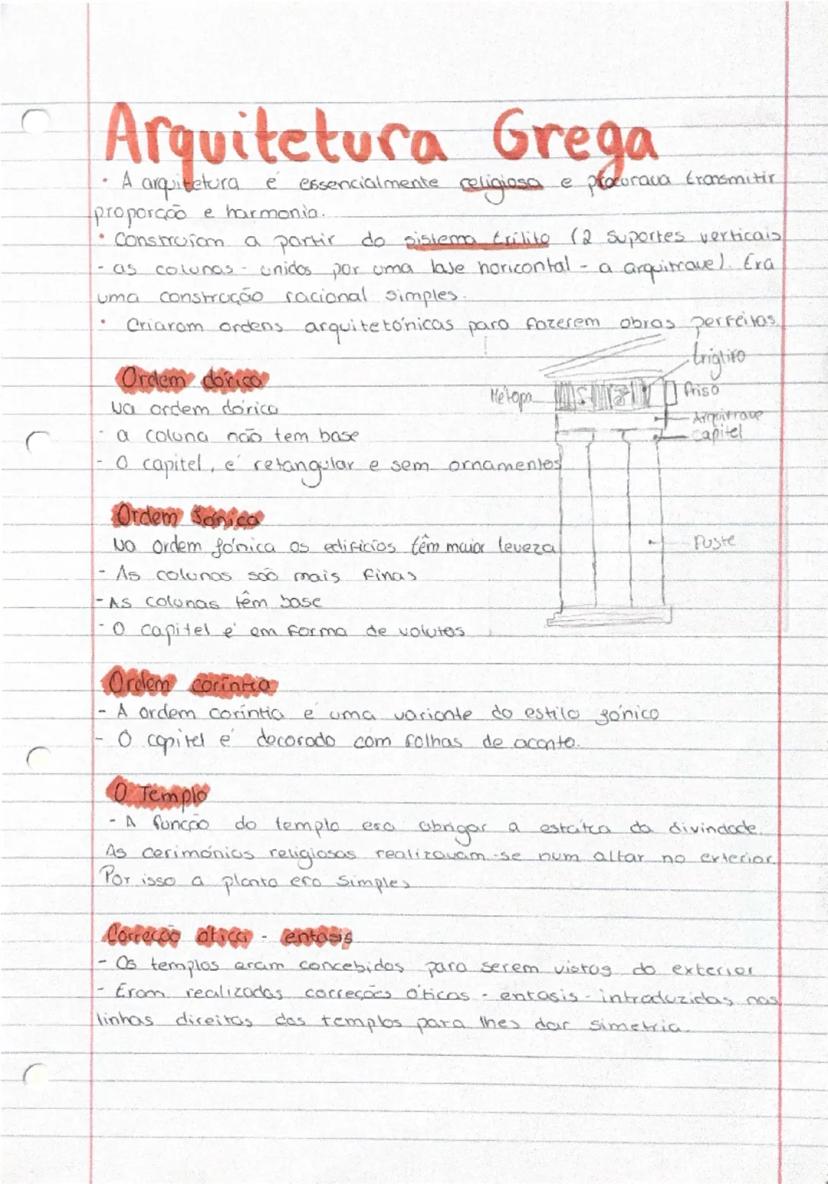 Arquitetura Grega
• A arquitetura é essencialmente religiosa e procurava transmitir
proporção e harmonia.
• Construíam a partir do sistema trílito (2 suportes verticais
- as colunas - unidos por uma laje horizontal - a arquitrave). Era
uma construção racional simples.
• Criaram ordens arquitetónicas para fazerem obras perfeitas.
Ordem dórica
Na ordem dórica
- a coluna não tem base
- O capitel, é retangular e sem ornamentos
Métopa
tríglifo
friso
Arquitrave
capitel
Fuste
Ordem Jónica
Na ordem jónica os edifícios têm maior leveza
- As colunas são mais finas
- As colunas têm base
- O capitel é em forma de volutas
Ordem coríntia
- A ordem coríntia é uma variante do estilo jónico
- O capitel é decorado com folhas de acanto.
O Templo
- A função do templo era abrigar a estátua da divindade.
As cerimónias religiosas realizavam-se num altar no exterior.
Por isso a planta era simples
Correção ótica - entasis
- Os templos eram concebidos para serem vistos do exterior
- Eram realizadas correções óticas - entasis - introduzidas nas
linhas direitas dos templos para lhes dar simetria.